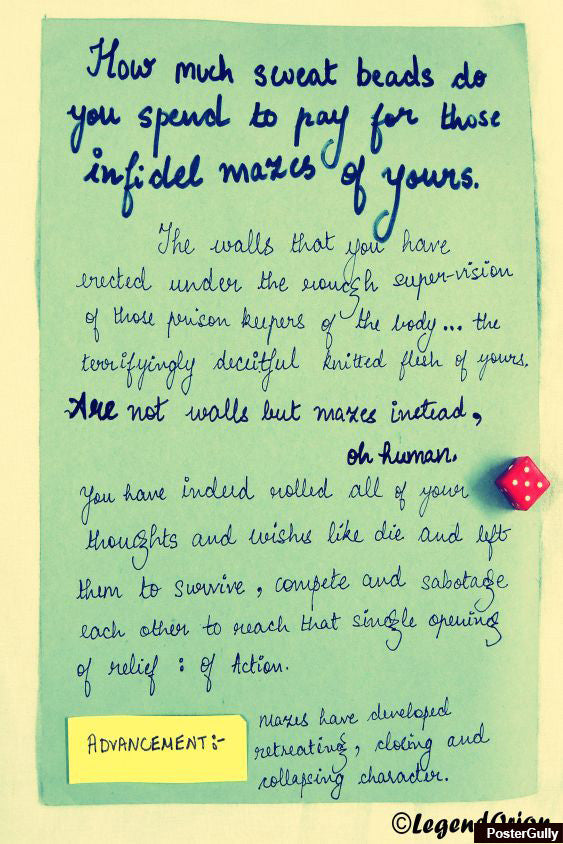 How much sweat beads do
you spend to pay for those
infidel mazes of yours.
The walls that you have
erected under the rough super-vision
of those prison keepers of the body... the
terrifyingly deceitful knitted flesh of yours.
Are not walls but mazes instead,
oh human.
You have indeed rolled all of your
thoughts and wishes like die and left
them to survive, compete and sabotage
each other to reach that single opening
of relief : of Action.
ADVANCEMENT:-
Mazes have developed
retreating, closing and
collapsing character.
©LegendOrion
PosterGully